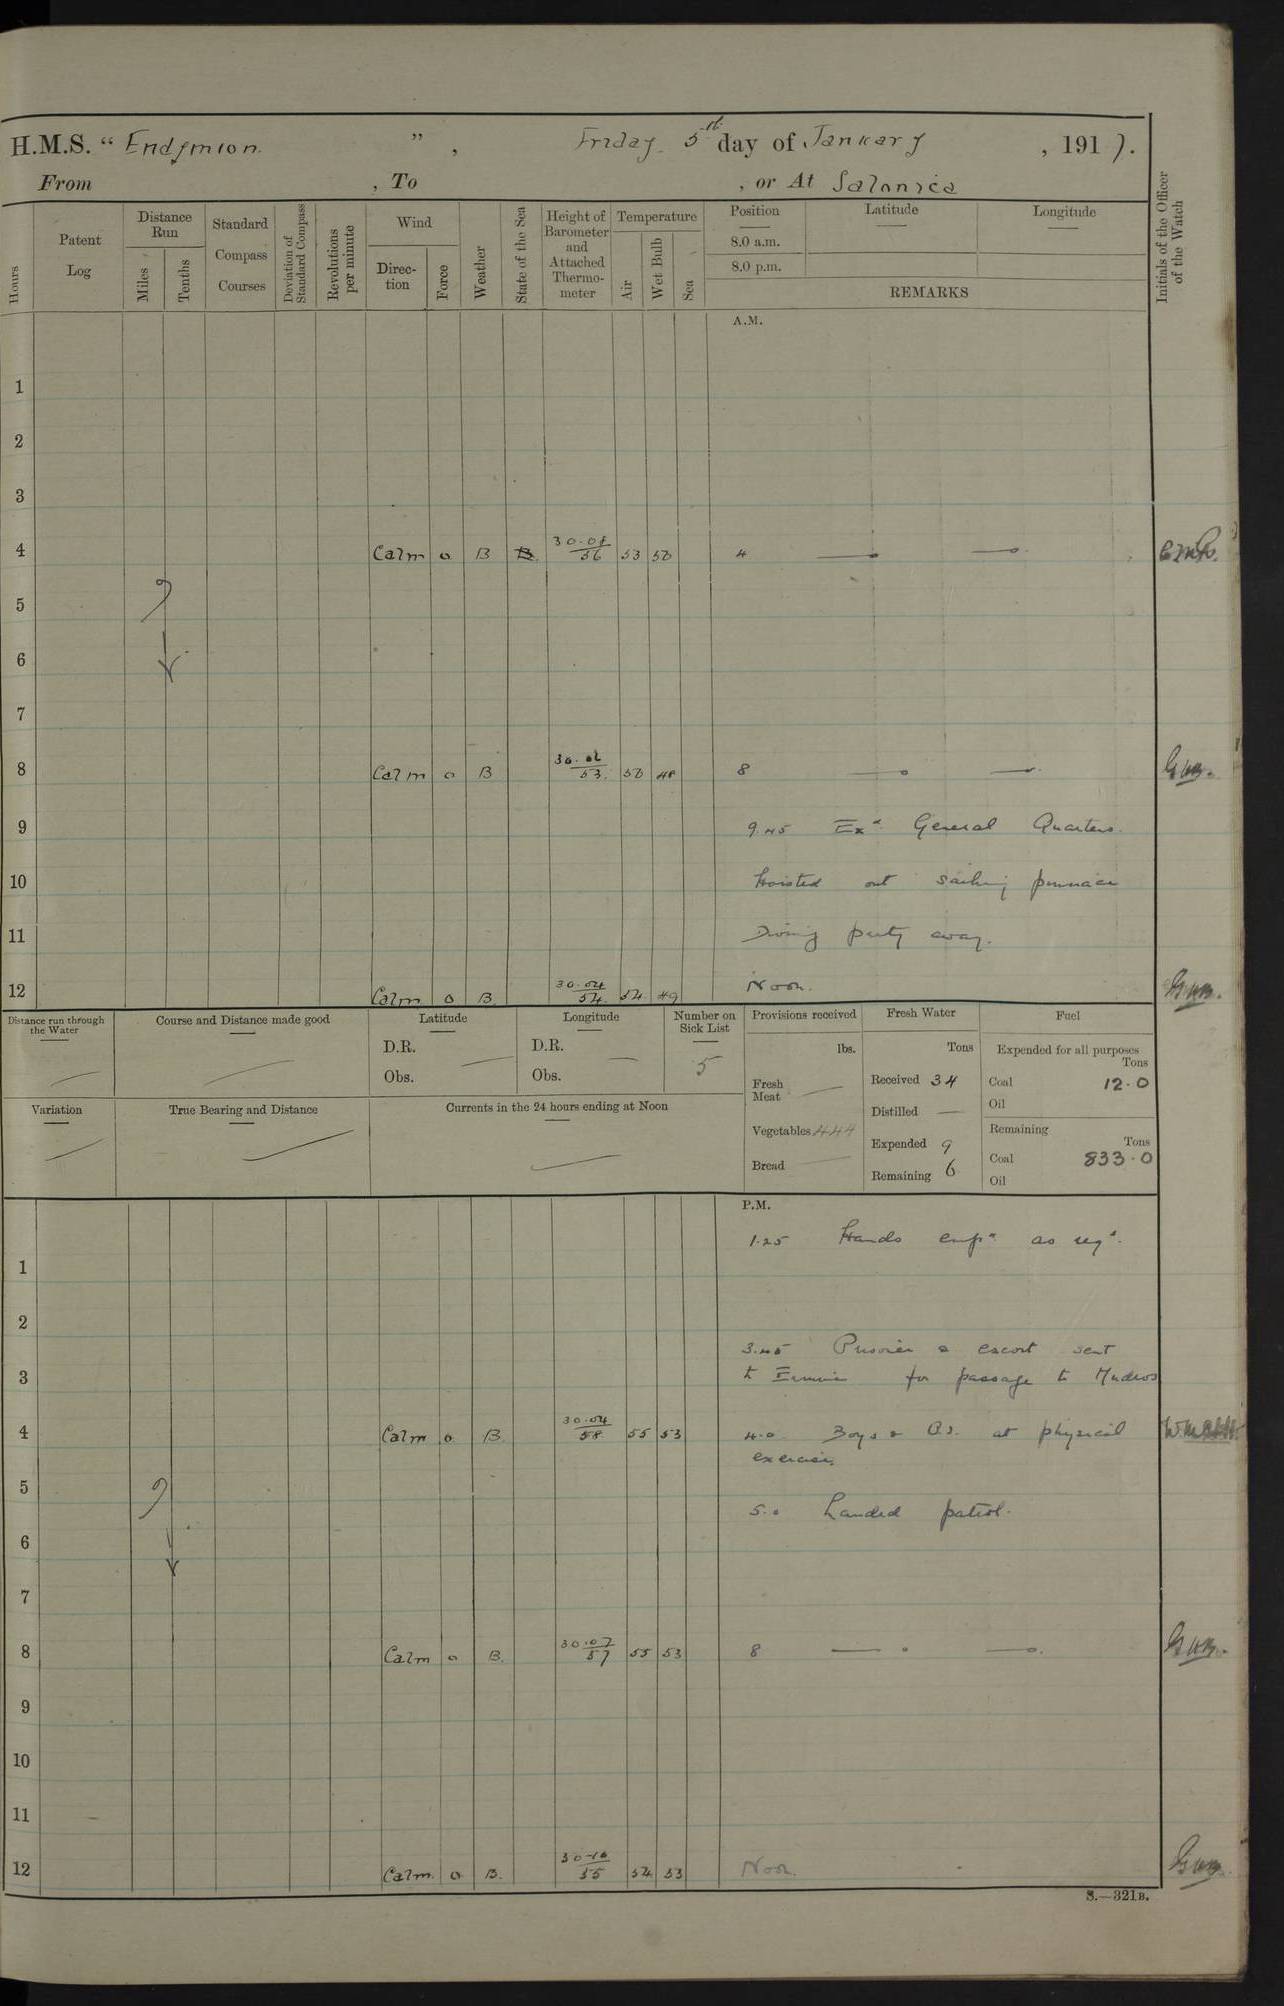 H.M.S. “ Endymion ”, Friday 5th day of January, 1917.
From , To , or At Salonica
Hours
Patent Log
Distance Run
Miles
Tenths
Standard Compass Courses
Deviation of Standard Compass
Revolutions per minute
Wind
Direction
Force
Weather
State of the Sea
Height of Barometer and Attached Thermometer
Temperature
Air
Wet Bulb
Sea
Position
8.0 a.m.
8.0 p.m.
Latitude
Longitude
REMARKS
Initials of the Officer of the Watch
A.M.
1
2
3
4 Calm 0 B 56 53 50 4
5
6
7
8 Calm 0 B 53. 50 48 8
9 9.45 Exd General Quarters.
10 Hoisted out sailing pinnace
11 Diving party away.
12 Calm 0 B 30.04 54. 54 49 Noon.
Distance run through the Water
Course and Distance made good
Latitude
D.R.
Obs.
Longitude
D.R.
Obs.
Number on Sick List
5
Provisions received
lbs.
Fresh Meat
Vegetables 444
Bread
Fresh Water
Tons
Received 34
Distilled
Expended 9
Remaining 6
Fuel
Expended for all purposes
Tons
Coal 12.0
Oil
Remaining
Tons
Coal 833.0
Oil
Variation
True Bearing and Distance
Currents in the 24 hours ending at Noon
P.M.
1.25 Hands empd as reqd.
1
2
3.45 Prisoner & escort sent
3 to for passage to Mudros
4 Calm 0 B 30.04 58. 55 53 4.0 Boys & O.S. at physical
exercise.
5 5.0 Landed patrol.
6
7
8 Calm 0 B. 30.07 57 55 53 8
9
10
11
12 Calm. 0 B. 30.10 55 54 53 Noon.
S.—321B.